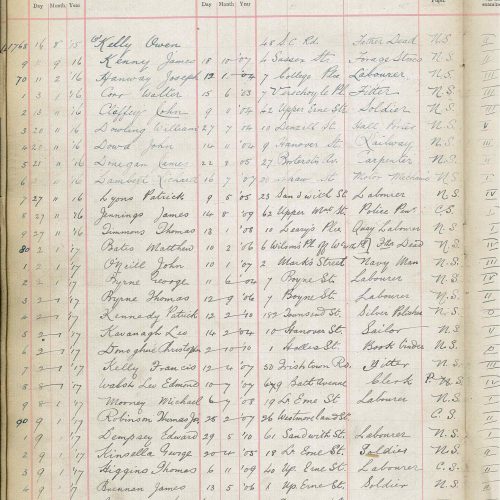 Day Month Year Day Month Year
41768 16 8 15 Kelly Owen 48 S.C. Rd. Father Dead N.S.
9 11 9 16 Kenny James 18 10 '07 4 Sussex St. Forage Stores N.S.
70 11 2 16 Hanway Joseph 12 1 '04 7 College Place Labourer N.S.
1 3 1 '16 Corr Walter 15 6 '03 7 Verschoyle Pl. Fitter N.S.
2 13 11 '16 Claffey John 9 11 '04 62 Upper Erne St. Soldier N.S.
3 20 11 '16 Dowling William 27 7 '04 10 Denzille St. Hall Porter N.S.
4 20 11 '16 Dowd John 14 11 '04 9 Hanover St. Railway N.S.
5 21 11 '16 Dinegan James 22 8 '05 27 Carpenter N.S.
6 Lambert Richard 16 7 '07 Motor Mechanic N.S.
7 27 11 16 Lyons Patrick 9 5 '05 23 Sandwith St. Labourer N.S.
8 27 11 '16 Jennings James 14 8 '09 62 Upper St. Police Pen. C.S.
9 27 11 '16 Timmons Thomas 13 1 '08 10 Leary's Place Quay Labourer N.S.
80 2 1 '17 Bates Matthew 10 2 '06 6 Wilsons Pl. off Dead N.S.
1 2 1 '17 O'Neill John 10 1 '07 2 Mark's Street Navy Man N.S.
2 2 1 '17 Byrne George 11 6 '04 7 Boyne St. Labourer N.S.
3 2 1 '17 Byrne Thomas 12 9 '06 7 Boyne St. Labourer N.S.
4 2 1 '17 Kennedy Patrick 12 2 '10 152 Townsend St. Silver Polisher N.S.
5 2 1 '17 Kavanagh Leo 14 2 '04 10 Hanover St. Sailor N.S.
6 2 1 '17 Donoghue Christopher 2 10 '10 1 Holles St. Book Binder N.S.
7 2 1 '17 Kelly Francis 12 4 '07 30 Irishtown Rd. Fitter N.S.
8 8 1 '17 Walsh Leo Edmond 10 7 '07 Bath Avenue Clerk P. N.S.
9 8 1 '17 Mooney Michael 6 7 '08 19 Lr Erne St. Labourer N.S.
90 9 1 '17 Robinson Thomas Jos 25 2 '07 26 Westmoreland St. C.S.
1 9 '17 Dempsey Edward 29 5 '10 61 Sandwith St. Labourer N.S.
2 9 1 '17 Kinsella George 20 4 '05 18 Lr Erne St. Soldier N.S.
3 9 1 '17 Higgins Thomas 6 11 '09 40 Up. Erne St. Labourer C.S.
4 9 '17 Brennan James 13 5 '06 Up. Erne St. Soldier N.S.